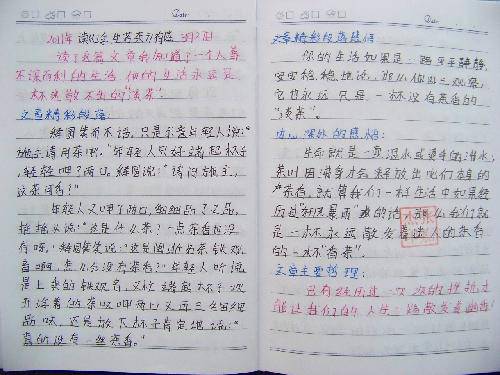 2011年 读《人生需要有磨》3月2日
读了这篇文章我知道了一个人若
不深刻的生活 他的生活永远是
一杯没散香的"淡茶"。
文章精彩段落:
释圆笑而不语,只是示意年轻人说:"
施主请用茶吧。"年轻人只好端起杯子,
轻轻呷了两口。释圆说:"请问施主,
这茶可香?"
年轻人又呷了两口,细细品了又品,
摇摇头说:"这是什么茶?一点茶香也没
有呀。"释圆笑笑说:"这是闽浙名茶铁观
音啊,怎么会没有茶香?"年轻人听说
是上乘的铁观音,又忙端起杯子吹
开浮着的茶叶呷两口又再三细细
品味,还是放下杯子肯定地说:"
真的没有一丝茶香。"
文章精彩段落赏悟
你的生活如果是一路风平浪静,
安安稳稳地说,那么你的三观茶,
它也永远只是一杯没有茶香的
"淡茶"。
内心深处的感悟:
生命就是一壶温水或更多的沸水,
茶叶因沸水才会释放出它们本身的
茶香,就算我们一样生活中如果经
历过"狂风暴雨"
是一杯永远散发着迷人的茶香
的一杯"香茶"。
文章主要哲理:
只有经历过一次次的挫折才
能让我们的人生一路散发着幽香